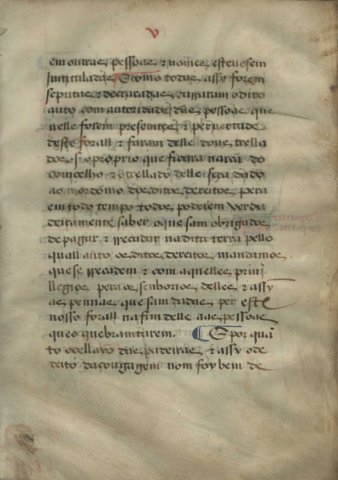 V
em outras pessoas e nomes e seus em
tituladas. E como todas assy forem
scpritas e decraradas, cerraram o dito
auto com autoridade das pessoas que
nelle forem presemtes e per vertude
deste forall e faram delle dous trella
dos .s. o proprio que ficara na arca do
comcelho e o trellado delle sera dado
ao mordomo dos ditos dereitos pera
em todo tempo todos poderem verda
deiramente saber o que sam obrigados
de pagar e rrecadar na dita terra pello
quall auto os ditos dereitos mandamos
que se rrecadem e com aquelles privi
llegios pera os senhorios delles e assy
as pennas que sam dadas per este
nosso forall na fim delle aas pessoas
que o quebramtarem. E por quã
to o sellayo das padeiras e assy o de
reito da çougagem nom foy bem de